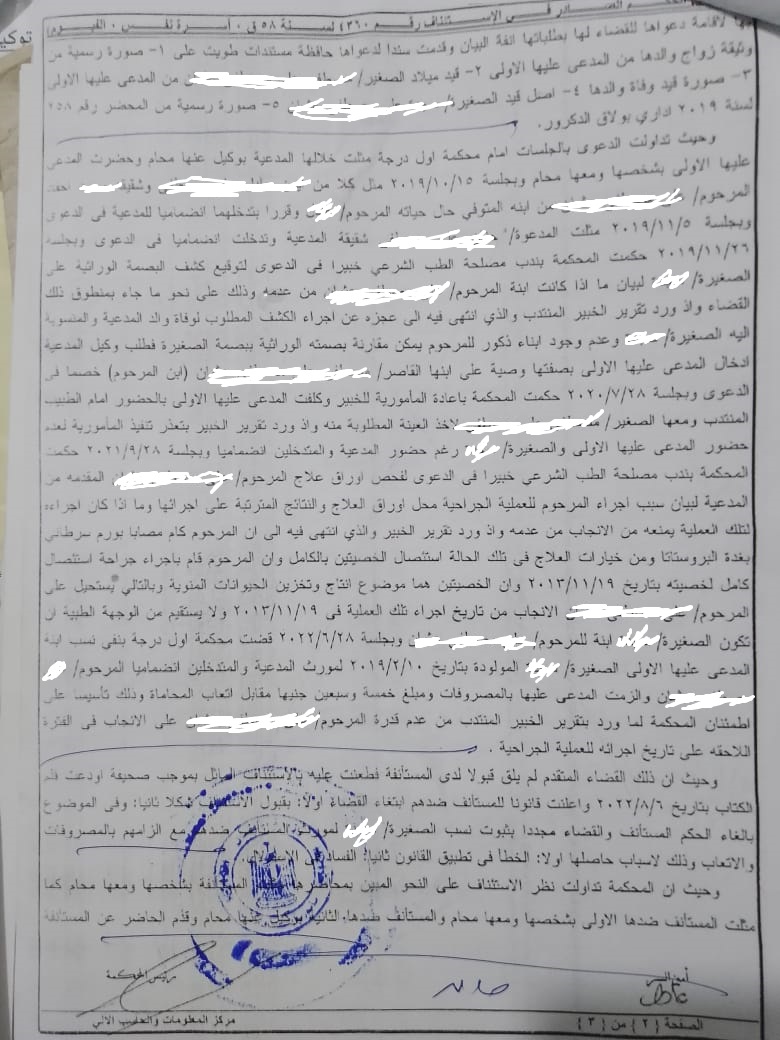 الصادر فى الاستئناف رقم ٤٣٦٠ لسنة ٥٨ ق . أسرة نفس . الفيوم
توكي
لاقامة دعواها للقضاء لها بطلباتها انفة البيان وقدمت سندا لدعواها حافظة مستندات طويت على ١- صورة رسمية من
وثيقة زواج والدها من المدعى عليها الاولى ٢- قيد ميلاد الصغير/ من المدعى عليها الاولى
٣- صورة قيد وفاة والدها ٤- اصل قيد الصغيرة/ ٥- صورة رسمية من المحضر رقم ٢٥٨
لسنة ٢٠١٩ اداري بولاق الدكرور .
وحيث تداولت الدعوى بالجلسات امام محكمة اول درجة مثلت خلالها المدعية بوكيل عنها محام وحضرت المدعى
عليها الاولى بشخصها ومعها محام وبجلسة ٢٠١٩/١٠/١٥ مثل كلا من وشقيقه
المرحوم/ من ابنه المتوفي حال حياته المرحوم/ وقررا بتدخلهما انضماميا للمدعية فى الدعوى
وبجلسة ٢٠١٩/١١/٥ مثلت المدعوة/ شقيقة المدعية وتدخلت انضماميا فى الدعوى وبجلسه
٢٠١٩/١١/٢٦ حكمت المحكمة بندب مصلحة الطب الشرعي خبيرا فى الدعوى لتوقيع كشف البصمة الوراثية على
الصغيرة/ لبيان ما اذا كانت ابنة المرحوم/ من عدمه وذلك على نحو ما جاء بمنطوق ذلك
القضاء واذ ورد تقرير الخبير المنتدب والذي انتهى فيه الى عجزه عن اجراء الكشف المطلوب لوفاة والد المدعية والمنسوبة
اليه الصغيرة/ وعدم وجود ابناء ذكور للمرحوم يمكن مقارنة بصمته الوراثية ببصمة الصغيرة فطلب وكيل المدعية
ادخال المدعى عليها الاولى بصفتها وصية على ابنها القاصر/ (ابن المرحوم) خصما فى
الدعوى وبجلسة ٢٠٢٠/٧/٢٨ حكمت المحكمة باعادة المأمورية للخبير وكلفت المدعى عليها الاولى بالحضور امام الطبيب
المنتدب ومعها الصغير/ لاخذ العينة المطلوبة منه واذ ورد تقرير الخبير بتعذر تنفيذ المأمورية لعدم
حضور المدعى عليها الاولى والصغيرة/ رغم حضور المدعية والمتدخلين انضماميا وبجلسة ٢٠٢١/٩/٢٨ حكمت
المحكمة بندب مصلحة الطب الشرعي خبيرا فى الدعوى لفحص اوراق علاج المرحوم/ المقدمه من
المدعية لبيان سبب اجراء المرحوم للعملية الجراحية محل اوراق العلاج والنتائج المترتبة على اجرائها وما اذا كان اجراءه
لتلك العملية يمنعه من الانجاب من عدمه واذ ورد تقرير الخبير والذي انتهى فيه الى ان المرحوم كام مصابا بورم سرطاني
بغدة البروستاتا ومن خيارات العلاج فى تلك الحالة استئصال الخصيتين بالكامل وان المرحوم قام باجراء جراحة استئصال
كامل لخصيته بتاريخ ٢٠١٣/١١/١٩ وان الخصيتين هما موضوع انتاج وتخزين الحيوانات المنوية وبالتالي يستحيل على
المرحوم/ الانجاب من تاريخ اجراء تلك العملية فى ٢٠١٣/١١/١٩ ولا يستقيم من الوجهة الطبية ان
تكون الصغيرة/ ابنة للمرحوم/ وبجلسة ٢٠٢٢/٦/٢٨ قضت محكمة اول درجة بنفي نسب ابنة
المدعى عليها الاولى الصغيرة/ المولودة بتاريخ ٢٠١٩/٢/١٠ لمورث المدعية والمتدخلين انضماميا المرحوم/
والزمت المدعى عليها بالمصروفات ومبلغ خمسة وسبعين جنيها مقابل اتعاب المحاماة وذلك تأسيسا على
اطمئنان المحكمة لما ورد بتقرير الخبير المنتدب من عدم قدرة المرحوم/ على الانجاب فى الفترة
اللاحقه على تاريخ اجرائه للعملية الجراحية .
وحيث ان ذلك القضاء المتقدم لم يلق قبولا لدى المستأنفة فطعنت عليه بالاستئناف الماثل بموجب صحيفة اودعت قلم
الكتاب بتاريخ ٢٠٢٢/٨/٦ واعلنت قانونا للمستأنف ضدهم ابتغاء القضاء اولا: بقبول الاستئناف شكلا ثانيا: وفى الموضوع
بالغاء الحكم المستأنف والقضاء مجددا بثبوت نسب الصغيرة/ لمورث المستأنف ضدهم مع الزامهم بالمصروفات
والاتعاب وذلك لاسباب حاصلها اولا: الخطأ فى تطبيق القانون ثانيا: الفساد فى الاستدلال.
وحيث ان المحكمة تداولت نظر الاستئناف على النحو المبين بمحاضرها مثلت المستأنفة بشخصها ومعها محام كما
مثلت المستأنف ضدها الاولى بشخصها ومعها محام والمستأنف ضدها الثانية بوكيل عنها محام وقدم الحاضر عن المستأنفة
أمين السر
رئيس المحكمة
الصفحة {٢} من {٣}
مركز المعلومات والحاسب الالي